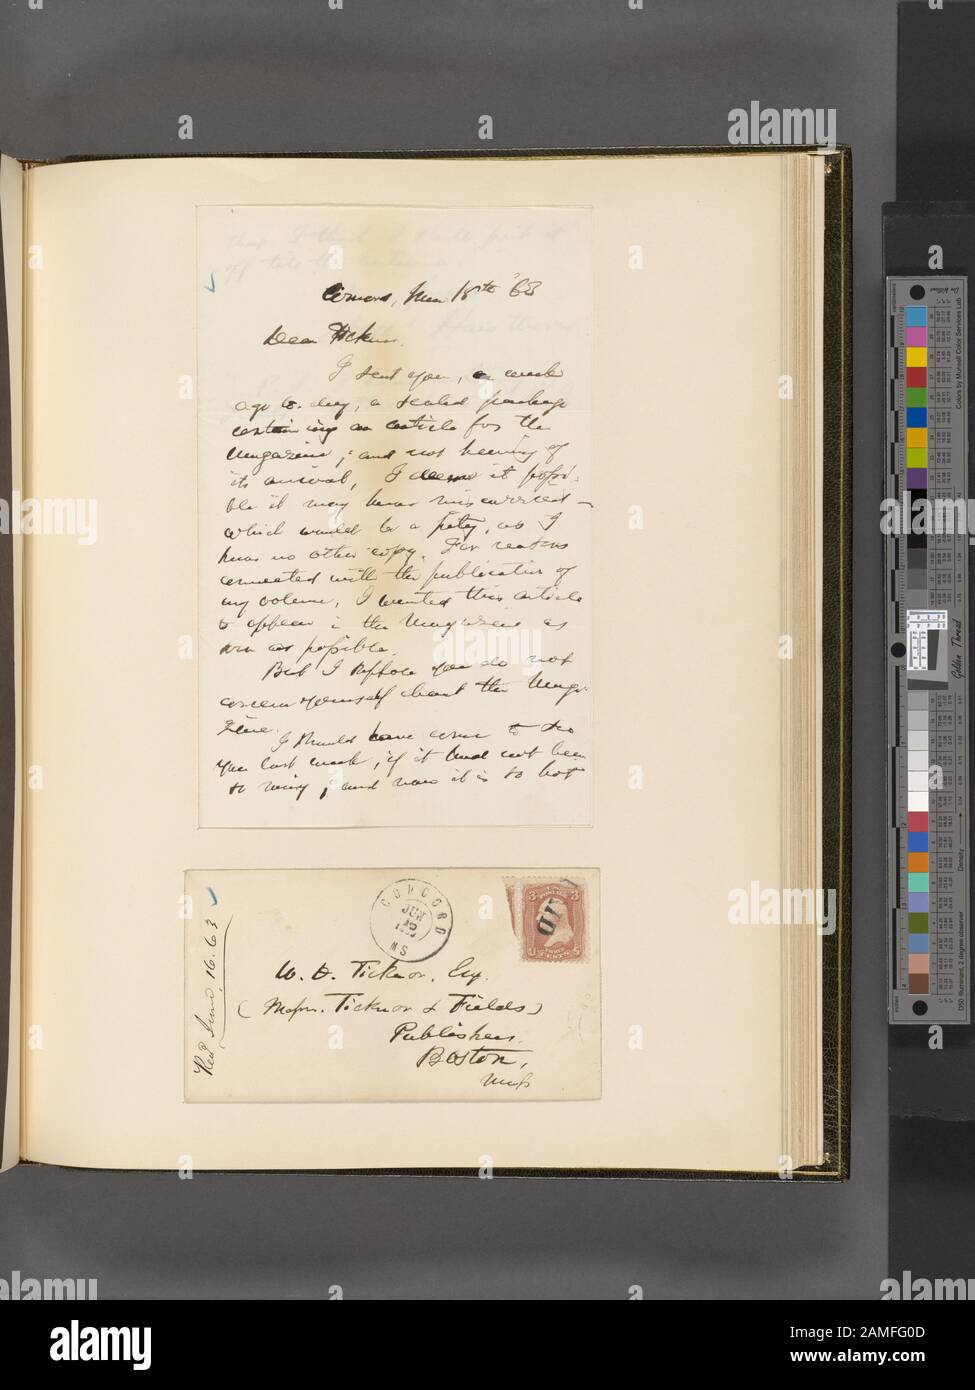 Concord, June 18th '63
Dear Ticknor,
I sent you, a week
ago to-day, a sealed package
containing an article for the
Magazine; and not hearing of
its arrival, I deem it possi-
ble it may have miscarried –
which would be a pity, as I
have no other copy. For reasons
connected with the publication of
my volume, I wanted this article
to appear in the Magazine as
soon as possible.
But I suppose you do not
concern yourself about the Maga-
zine.
I should have come to see
you last week, if it had not been
so rainy; and now it is so hot
Recd June, 16. 63
CONCORD
JUN
MS
PAID
3 3
U S
W. D. Ticknor, Esq.
(Messrs. Ticknor & Fields)
Publishers,
Boston,
Mass
alamy
a
Golden Thread
Colors by Munsell Color Services Lab
Density
D50 Illuminant, 2 degree observer
Image ID: 2AMFG0D
www.alamy.com